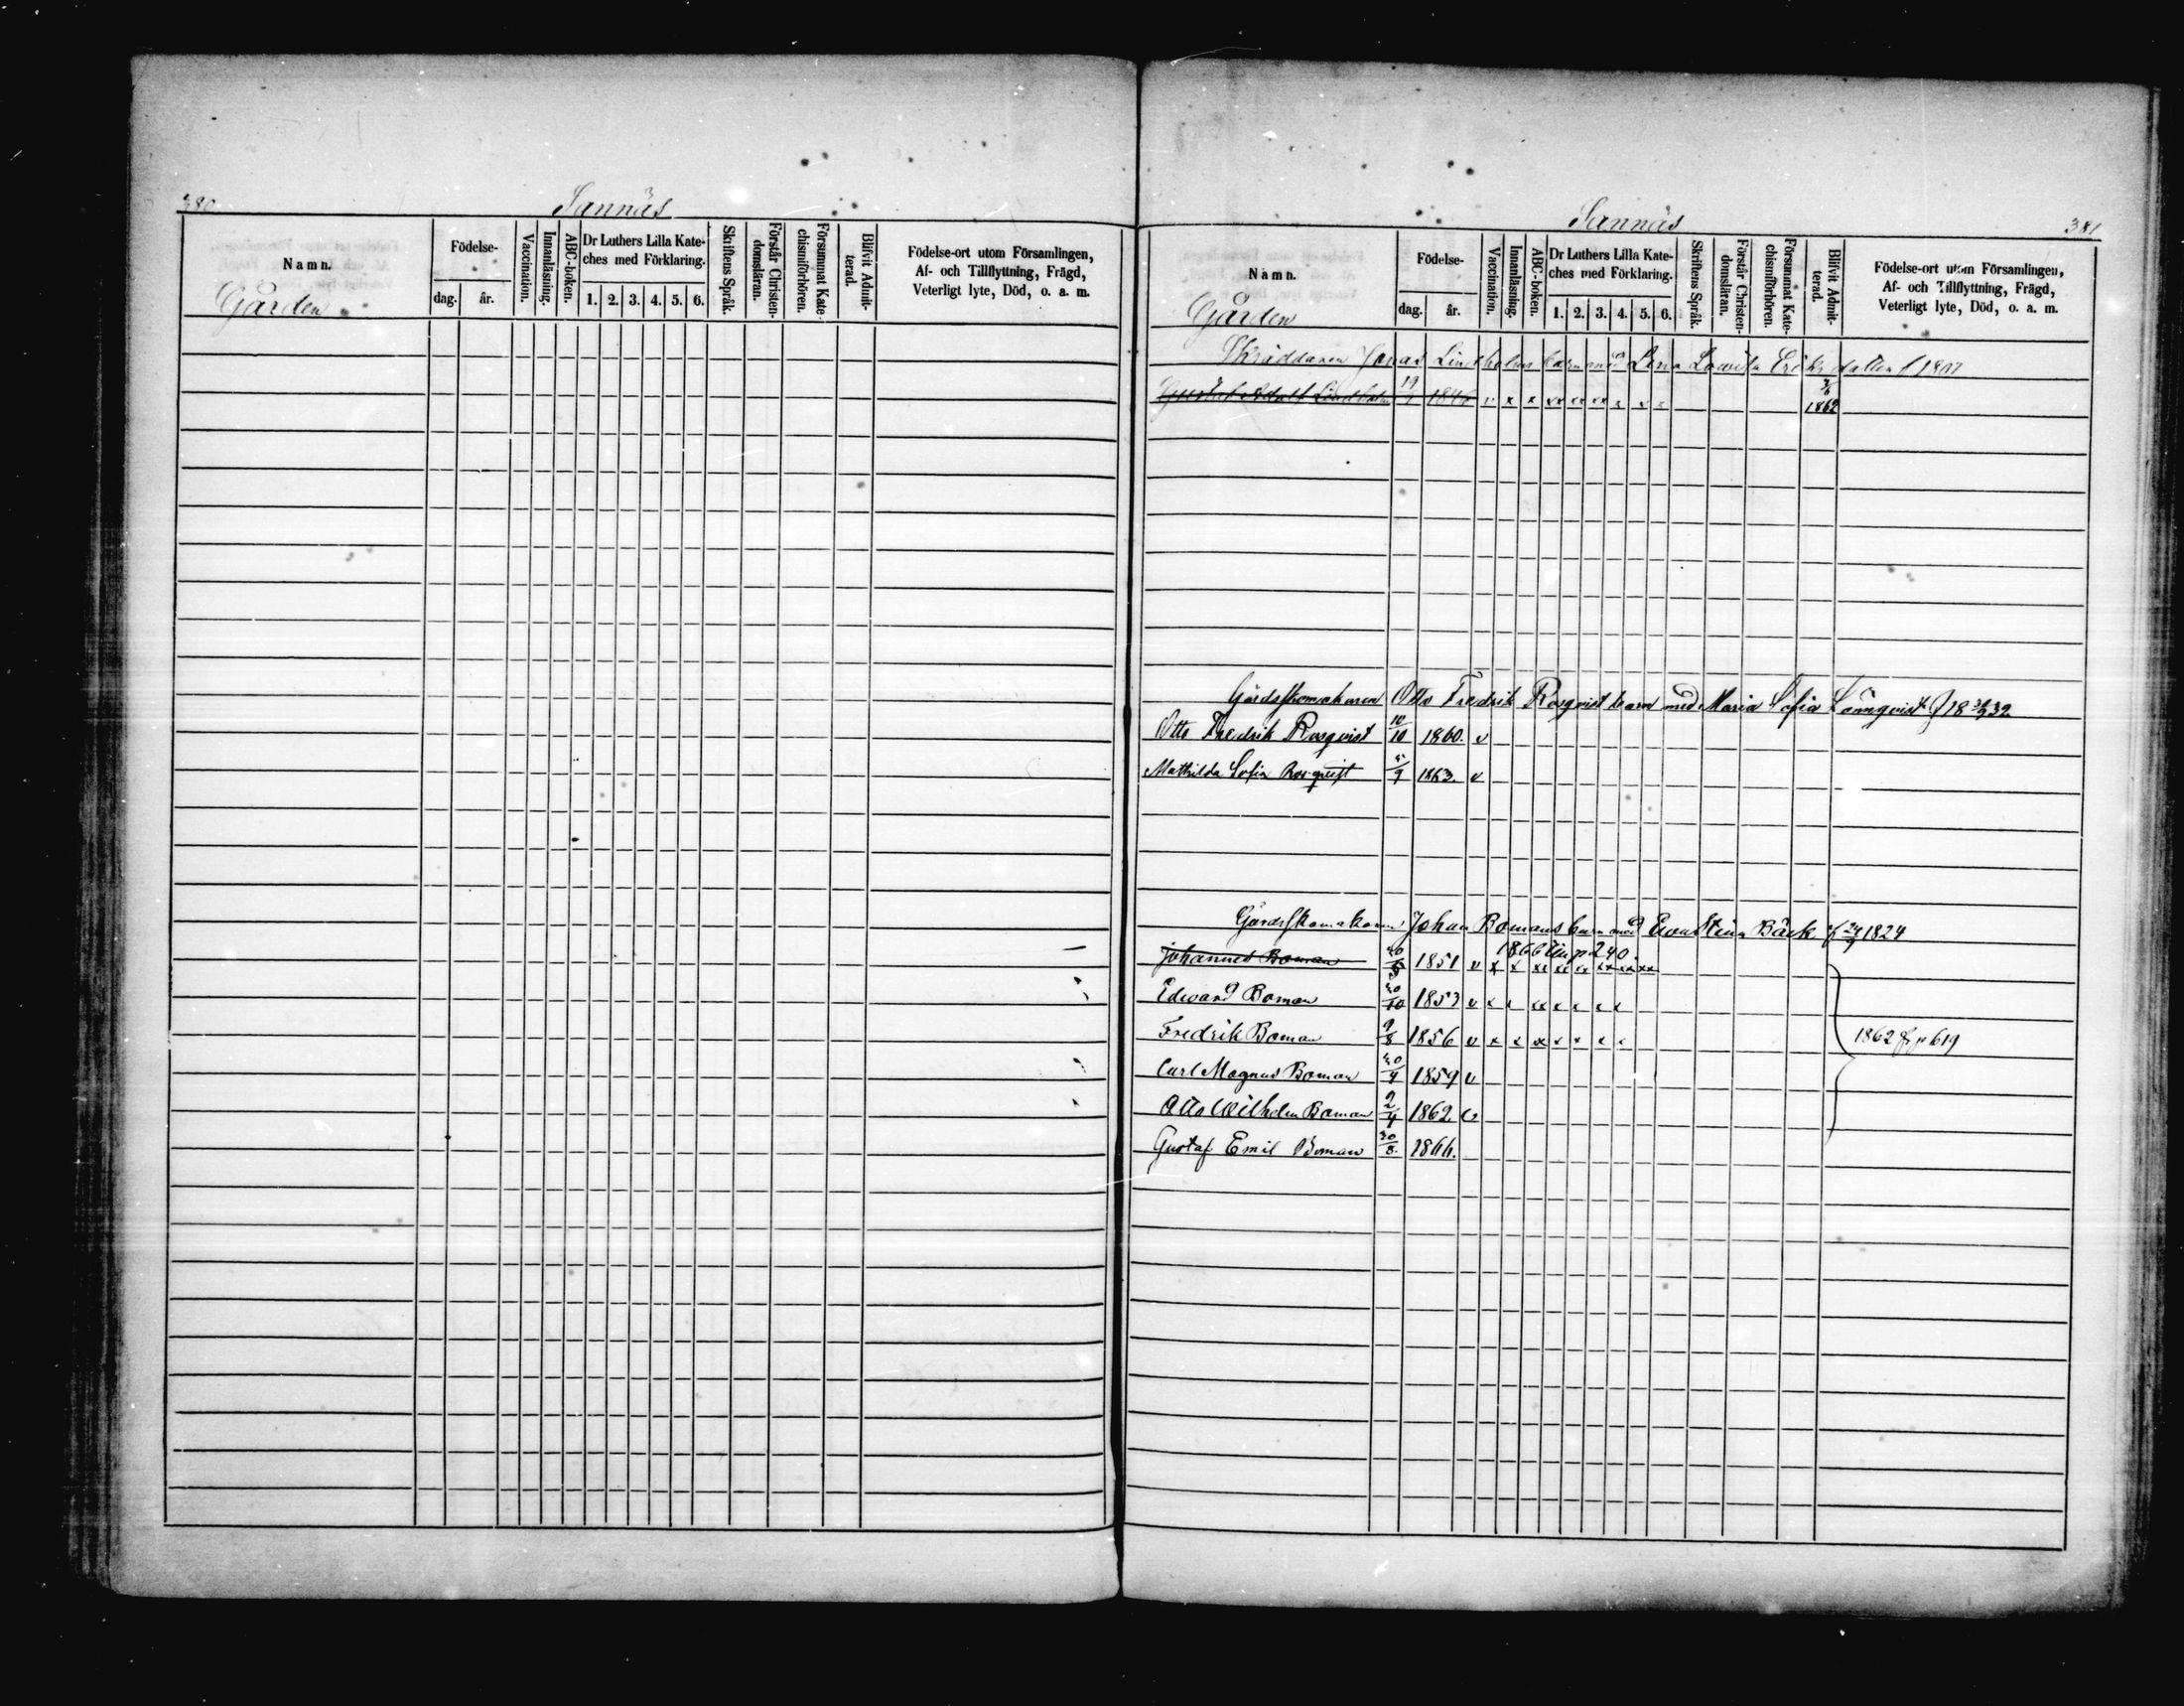 380
Sannäs
Namn.
Gården
Födelse-
dag. år.
Vaccination.
Innanläsning.
ABC-boken.
Dr Luthers Lilla Kate-
ches med Förklaring.
1. 2. 3. 4. 5. 6.
Skriftens Språk.
Förstår Christen-
domsläran.
Försummat Kate-
chismiförhören.
Blifvit Admit-
terad.
Födelse-ort utom Församlingen,
Af- och Tillflyttning, Frägd,
Veterligt lyte, Död, o. a. m.
Sannäs
381
Namn.
Gården
Födelse-
dag. år.
Vaccination.
Innanläsning.
ABC-boken.
Dr Luthers Lilla Kate-
ches med Förklaring.
1. 2. 3. 4. 5. 6.
Skriftens Språk.
Förstår Christen-
domsläran.
Försummat Kate-
chismiförhören.
Blifvit Admit-
terad.
Födelse-ort utom Församlingen,
Af- och Tillflyttning, Frägd,
Veterligt lyte, Död, o. a. m.
Skräddaren Jonas Lindholms barn med Lena Lovisa
Lindholm v x x xx xx xx x x x 1862
Gårdsskomakaren Otto Fredrik Rosqvist barn med Maria Sofia Lönnqvist
Otto Fredrik Rosqvist 10/10 1860. v
Mathilda Sofia Rosqvist 1863. v
Gårdsskomakaren Johan Bomans barn med Eva Stina Bäck 1824
1866
Johannes Boman 1851 v x x xx xx xx xx xx xx
Edward Boman 30/10 1853 v x x xx x x x x
Fredrik Boman 9/8 1856 v x x xx x x x x
1862 fr p 619
Carl Magnus Boman 1859 v
Otto Wilhelm Boman 2/4 1862 v
Gustaf Emil Boman 30/8. 1866.